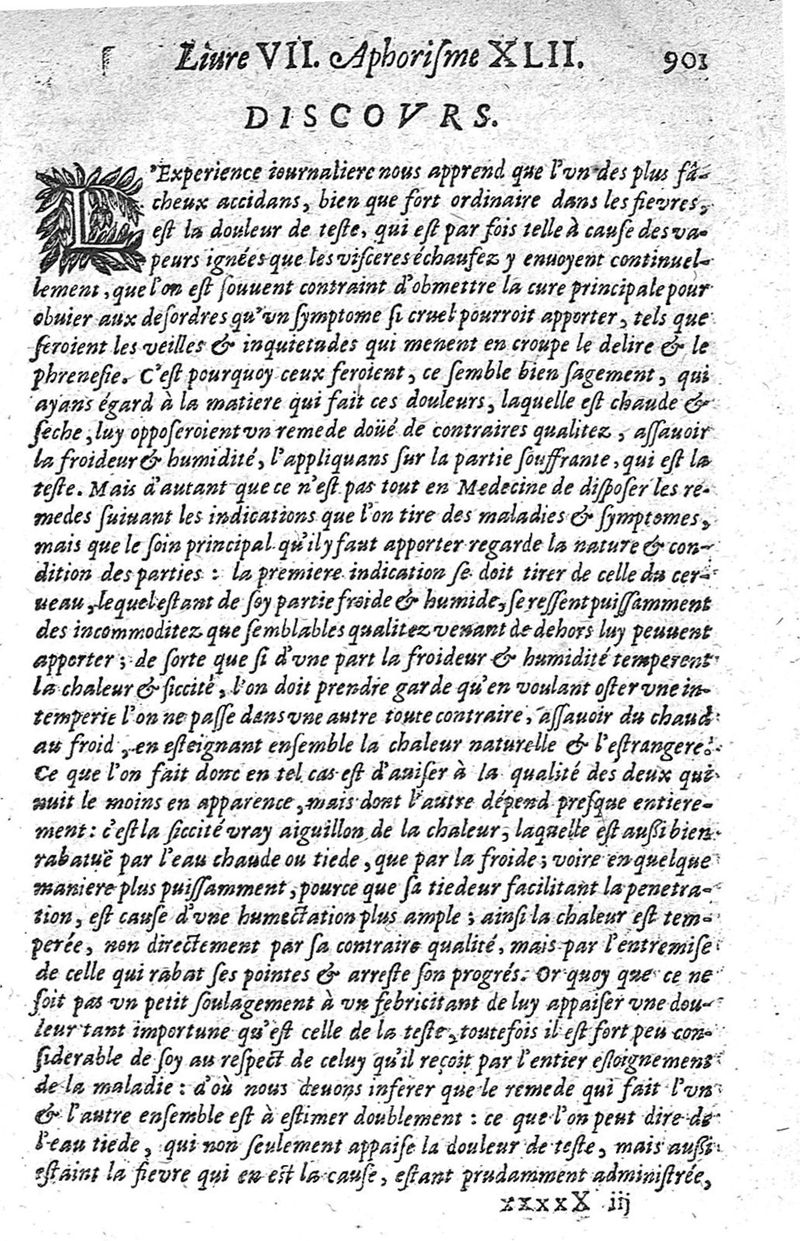 Liure VII. Aphorisme XLII. 901
DISCOVRS.
L'Experience iournaliere nous apprend que l'vn des plus fâ-
cheux accidans, bien que fort ordinaire dans les fievres,
est la douleur de teste, qui est par fois telle à cause des va-
peurs ignées que les visceres échaufez y enuoyent continuel-
lement, que l'on est souuent contraint d'obmettre la cure principale pour
obuier aux desordres qu'vn symptome si cruel pourroit apporter, tels que
seroient les veilles & inquietudes qui menent en croupe le delire & le
phrenesie. C'est pourquoy ceux feroient, ce semble bien sagement, qui
ayans égard à la matiere qui fait ces douleurs, laquelle est chaude &
seche, luy opposeroient vn remede doüé de contraires qualitez, assauoir
la froideur & humidité, l'appliquans sur la partie souffrante, qui est la
teste. Mais d'autant que ce n'est pas tout en Medecine de disposer les re-
medes suiuant les indications que l'on tire des maladies & symptomes,
mais que le soin principal qu'il y faut apporter regarde la nature & con-
dition des parties : la premiere indication se doit tirer de celle du cer-
ueau, lequel estant de soy partie froide & humide, se ressent puissamment
des incommoditez que semblables qualitez venant de dehors luy peuuent
apporter ; de sorte que si d'vne part la froideur & humidité temperent
la chaleur & siccité, l'on doit prendre garde qu'en voulant oster vne in-
temperie l'on ne passe dans vne autre toute contraire, assauoir du chaud
au froid, en esteignant ensemble la chaleur naturelle & l'estrangere.
Ce que l'on fait donc en tel cas est d'auiser à la qualité des deux qui
nuit le moins en apparence, mais dont l'autre dépend presque entiere-
ment : c'est la siccité vray aiguillon de la chaleur, laquelle est aussi bien
rabatuë par l'eau chaude ou tiede, que par la froide ; voire en quelque
maniere plus puissamment, pource que sa tiedeur facilitant la penetra-
tion, est cause d'vne humectation plus ample ; ainsi la chaleur est tem-
perée, non directement par sa contraire qualité, mais par l'entremise
de celle qui rabat ses pointes & arreste son progrés. Or quoy que ce ne
soit pas vn petit soulagement à vn febricitant de luy appaiser vne dou-
leur tant importune qu'est celle de la teste, toutefois il est fort peu con-
siderable de soy au respect de celuy qu'il reçoit par l'entier esloignement
de la maladie : d'où nous deuons inferer que le remede qui fait l'vn
& l'autre ensemble est à estimer doublement : ce que l'on peut dire de
l'eau tiede, qui non seulement appaise la douleur de teste, mais aussi
estaint la fievre qui en est la cause, estant prudamment administrée,
xxxxX iij